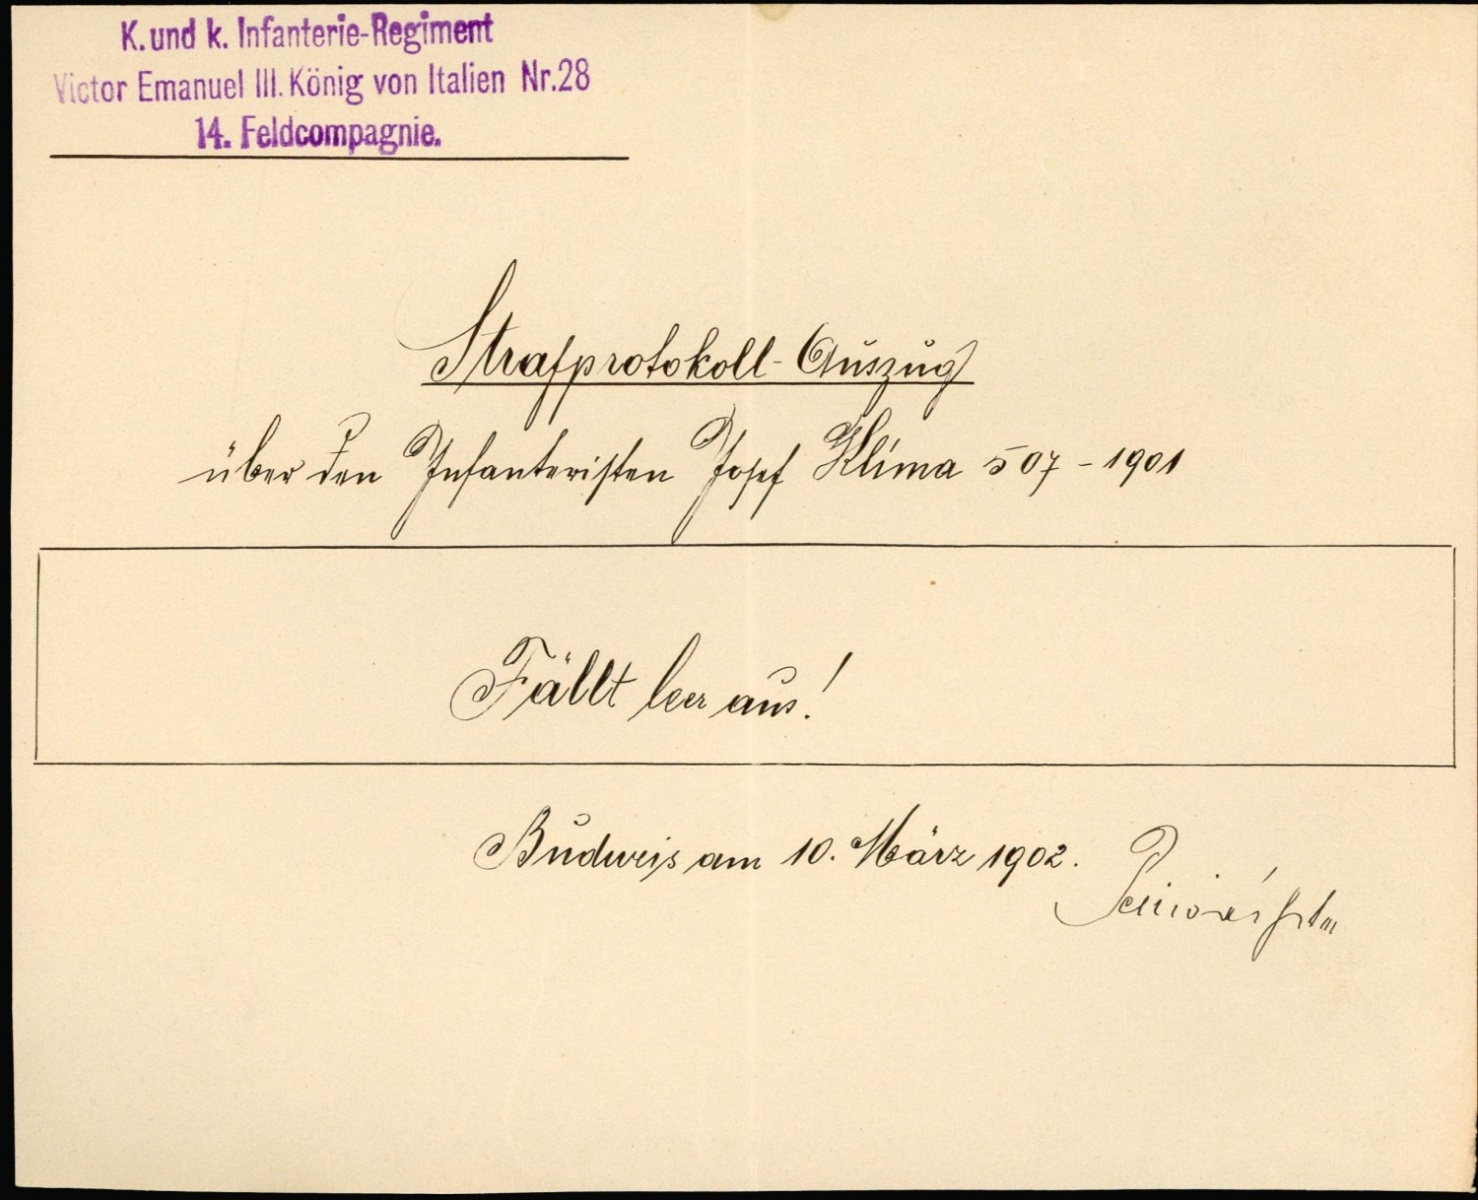 K. und k. Infanterie-Regiment
Victor Emanuel III. König von Italien Nr. 28
14. Feldcompagnie.
Strafprotokoll-Auszug
über den Infanteristen Josef Klima 507-1901
Fällt leer aus!
Budweis am 10. März 1902.